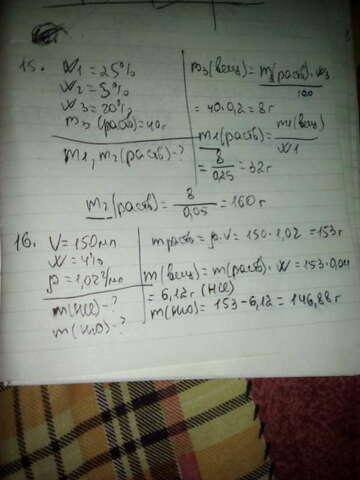 15.
W1 = 25%
W2 = 5%
W3 = 20%
m3 (раств) = 40г
m1, m2 (раств) - ?
m3 (вещ) = m3 (раств) · w3
100
= 40 · 0,2 = 8г
m1 (раств) = m(вещ)
W1
= 8
0,25
= 32г
m2 (раств) = 8
0,05
= 160г
16.
V = 150мл
W = 4%
ρ = 1,02г/мл
m(HCl) - ?
m(H2O) - ?
m раств = ρ · V = 150 · 1,02 = 153г
m(вещ) = m(раств) · W = 153 · 0,04
= 6,12г (HCl)
m(H2O) = 153 - 6,12 = 146,88г